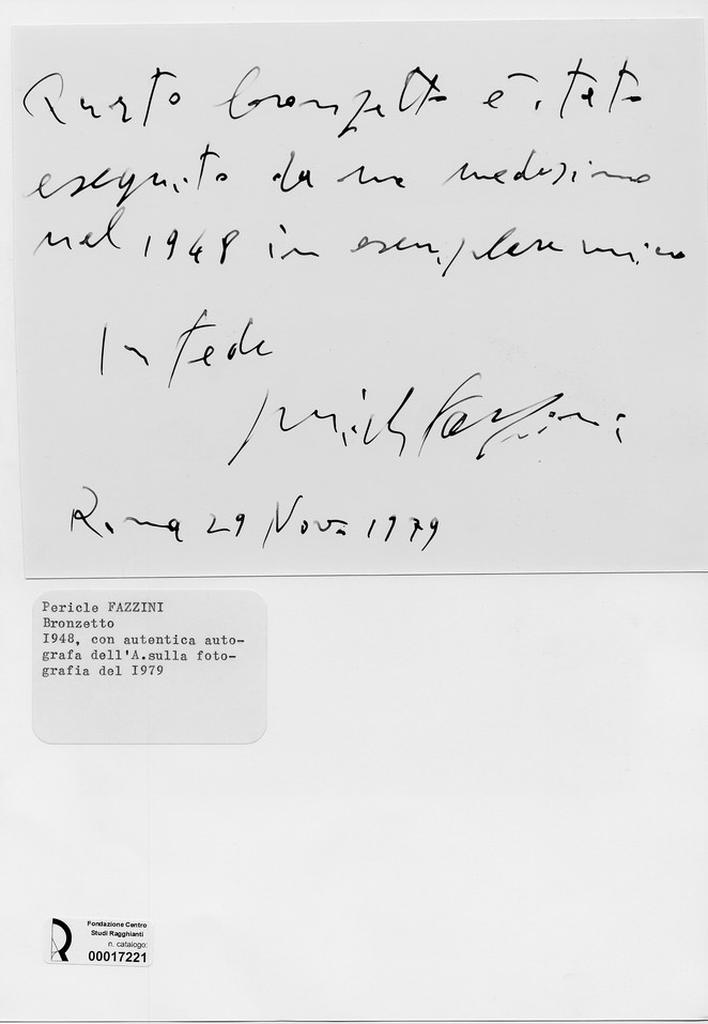 Questo bronzetto è stato
eseguito da me medesimo
nel 1948 in esemplare unico
In fede
Pericle Fazzini
Roma 29 Nov. 1979
Pericle FAZZINI
Bronzetto
I948, con autentica auto-
grafa dell'A.sulla foto-
grafia del I979
Fondazione Centro
Studi Ragghianti
n. catalogo:
00017221